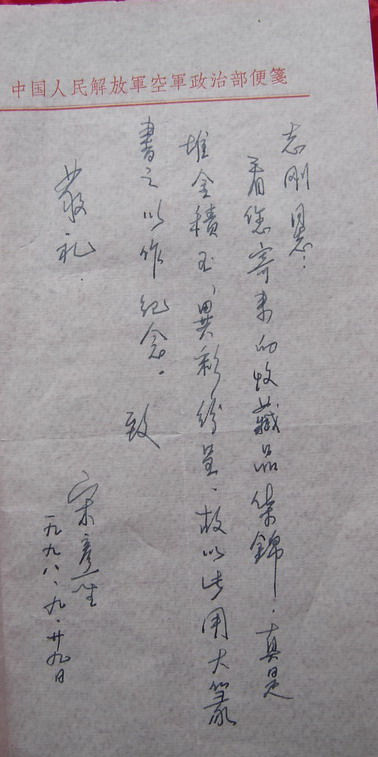 中国人民解放軍空軍政治部便箋
志刚同志：
看您寄来的收藏品集錦，真是
堆金積玉、異彩纷呈、故以此用大篆
書之以作纪念。 致
敬礼
宋彦生
一九九八、九、廿九日